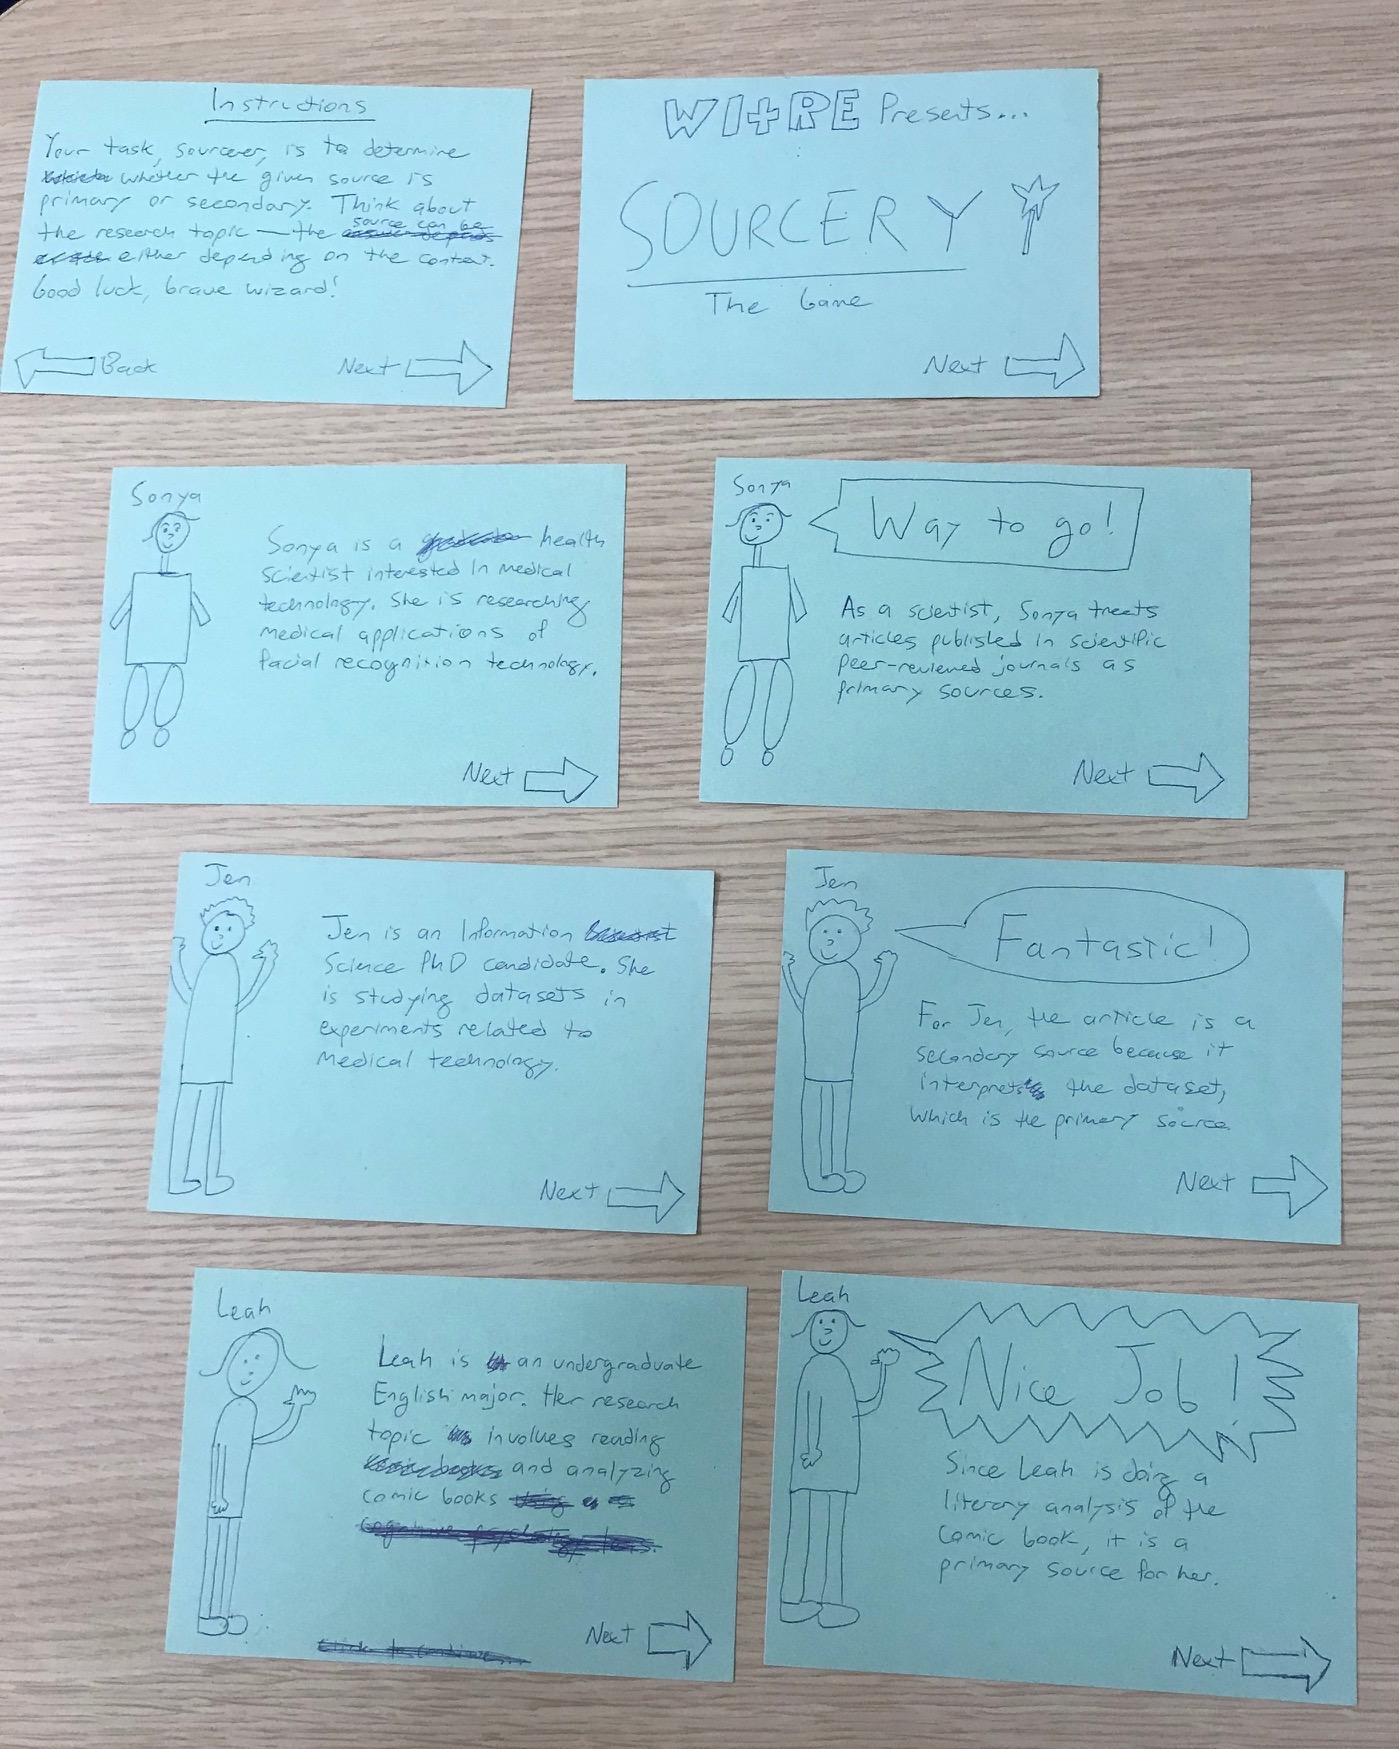 Instructions
Your task, sourcerer, is to determine
whether the given source is
primary or secondary. Think about
the research topic — the source can be
either depending on the context.
Good luck, brave wizard!
Back
Next
WI+RE Presents...
SOURCERY
The Game
Next
Sonya
Sonya is a health
scientist interested in medical
technology. She is researching
medical applications of
facial recognition technology.
Next
Sonya
Way to go!
As a scientist, Sonya treats
articles published in scientific
peer-reviewed journals as
primary sources.
Next
Jen
Jen is an Information
Science PhD candidate. She
is studying datasets in
experiments related to
medical technology.
Next
Jen
Fantastic!
For Jen, the article is a
secondary source because it
interprets the dataset,
which is the primary source
Next
Leah
Leah is an undergraduate
English major. Her research
topic involves reading
and analyzing
comic books
Next
Leah
Nice Job!
Since Leah is doing a
literary analysis of the
comic book, it is a
primary source for her.
Next